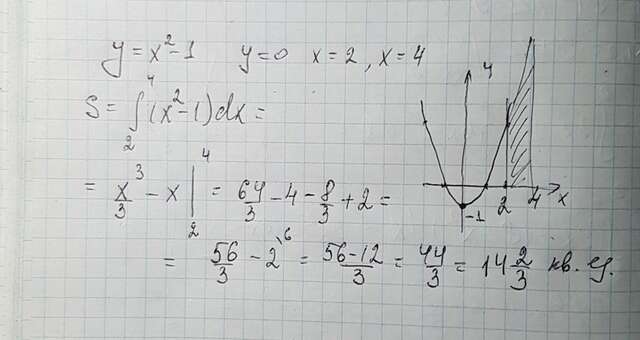 y = x² - 1 y = 0 x = 2, x = 4
S = ∫₂⁴ (x² - 1) dx =
= x³/3 - x |₂⁴ = 64/3 - 4 - 8/3 + 2 =
= 56/3 - 2\6 = 56-12/3 = 44/3 = 14 2/3 кв. ед.
y
-1 2 4 x